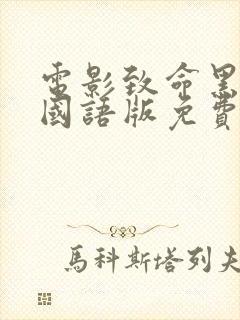 電影致命黑
國語版免費
馬科斯塔列夫